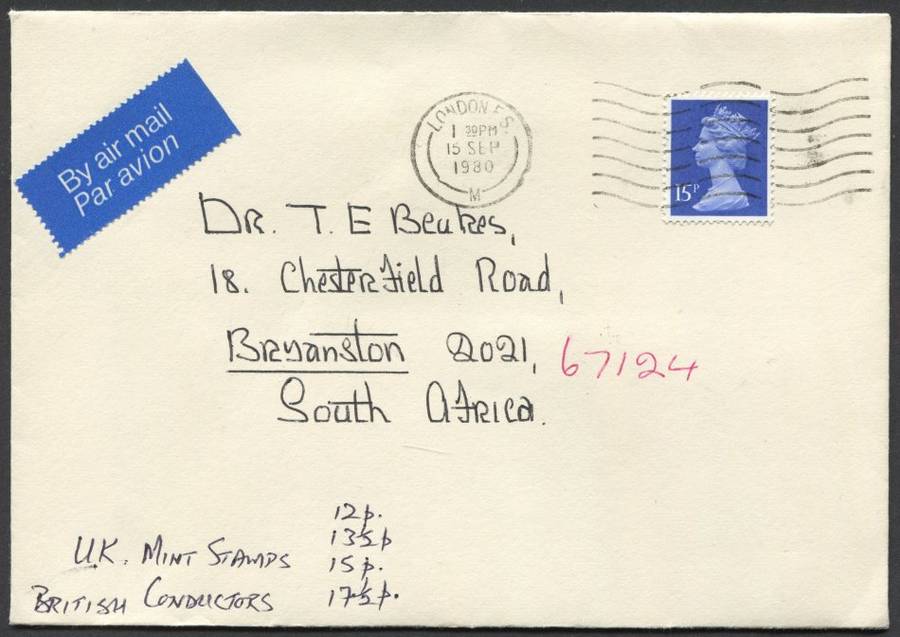 By air mail
Par avion
LONDON F.S.
15 SEP
1980
M
15P
DR. T. E Beukes,
18. Chesterfield Road,
Bryanston 2021,
67124
South Africa.
12p.
13½p
U.K. MINT STAMPS 15p.
BRITISH CONDUCTORS 17½p.